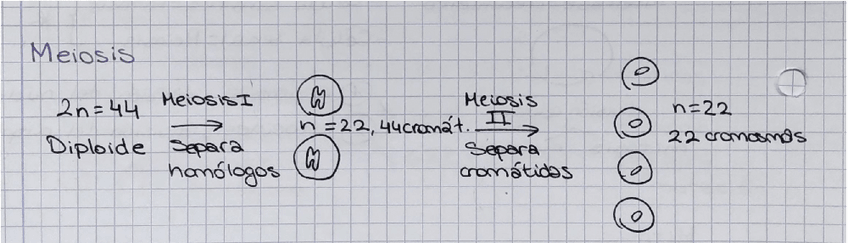 Meiosis
2n=44
Diploide
Meiosis I
Separa
homólogos
n =22, 44 cromát.
Meiosis
II
Separa
cromátidas
n=22
22 cromosomas